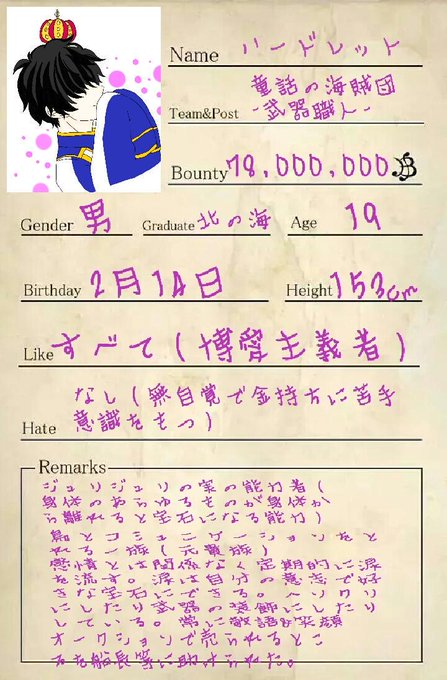 Name ハードレット
童話の海賊団
Team&Post -武器職人-
Bounty 78,000,000
Gender 男 Graduate 北の海 Age 19
Birthday 2月14日 Height 153cm
Like すべて(博愛主義者)
なし(無自覚で金持ちに苦手
Hate 意識をもつ)
Remarks
ジュリジュリの実の能力者(
身体のあらゆるものが身体か
ら離れると宝石になる能力)
とコミュニケーションをと
れる一族(元貴族)
感情とは関係なく定期的に涙
を流す。涙は自分の意志で好
きな宝石にできる。ヘソクリ
にしたり武器の装飾にしたり
している。常に敬語&笑顔
オークションで売られるとこ
ろを船長等に助けられた。